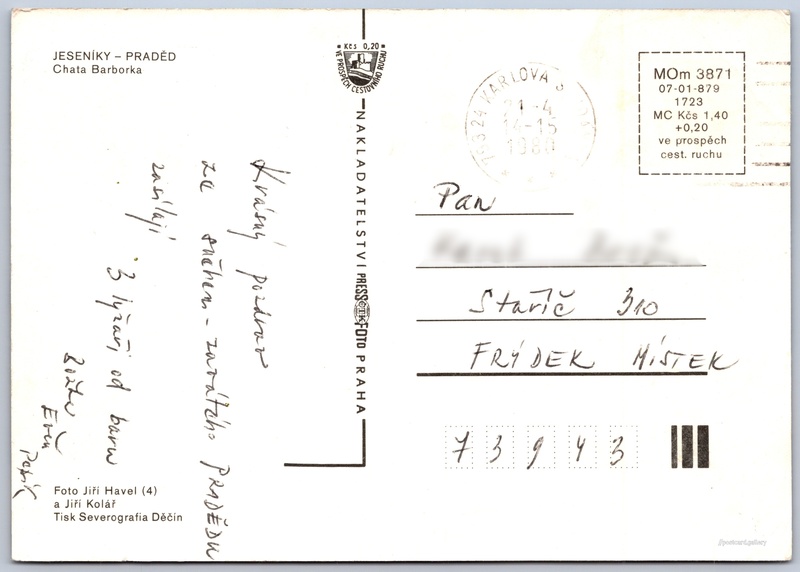 JESENÍKY – PRADĚD
Chata Barborka
Kčs 0,20
VE PROSPĚCH CESTOVNÍHO RUCHU
NAKLADATELSTVÍ PRESSFOTO PRAHA
ČTK
Krásný pozdrav
ze sněhem - zavátého PRADĚDU
zasílají
3 lyžaři od baru
Foto Jiří Havel (4)
a Jiří Kolář
Tisk Severografia Děčín
KARLOVA
21-4
14-15
1980
MOm 3871
07-01-879
1723
MC Kčs 1,40
+0,20
ve prospěch
cest. ruchu
Pan
Staříč 310
FRÝDEK MÍSTEK
73943